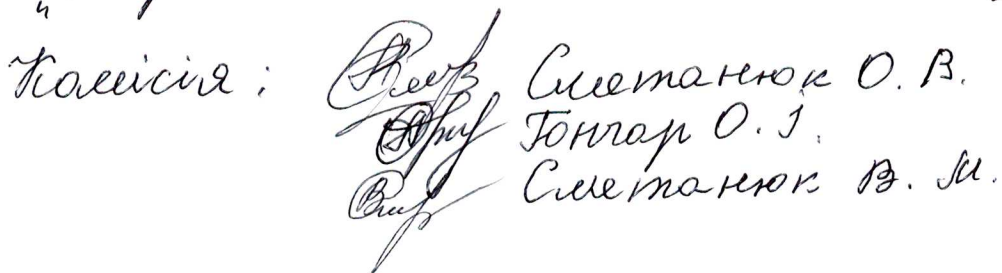 Комісія : Сметанюк О. В.
Гончар О. І.
Сметанюк В. М.